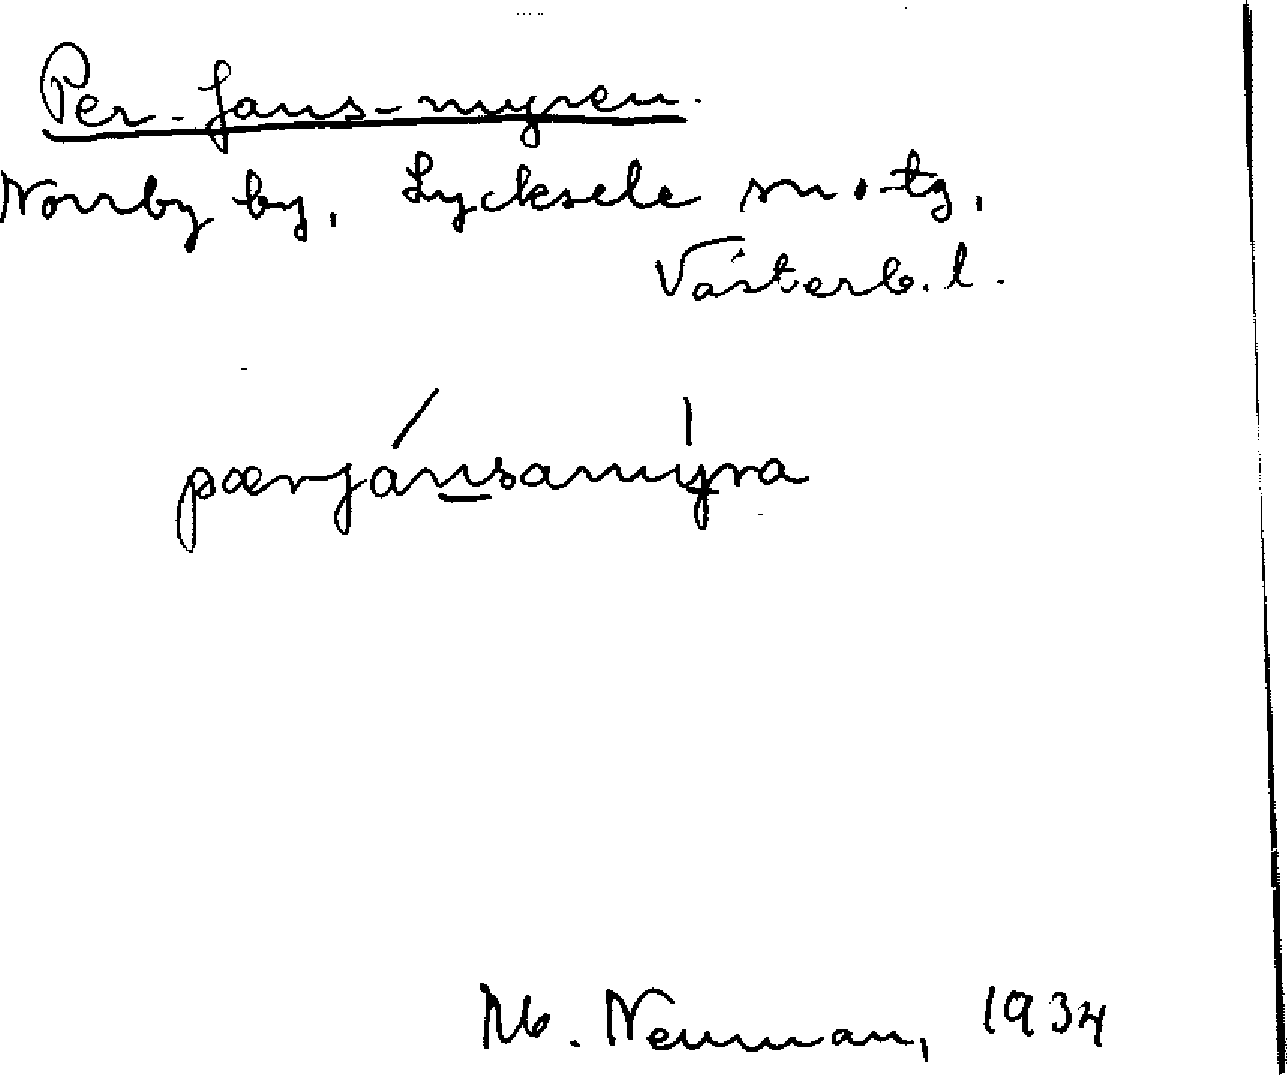 Per-Jans-myren.
Norrby by, Lycksele sn o. tg,
Västerb. l.
pærjánsamyra
Neuman, 1934